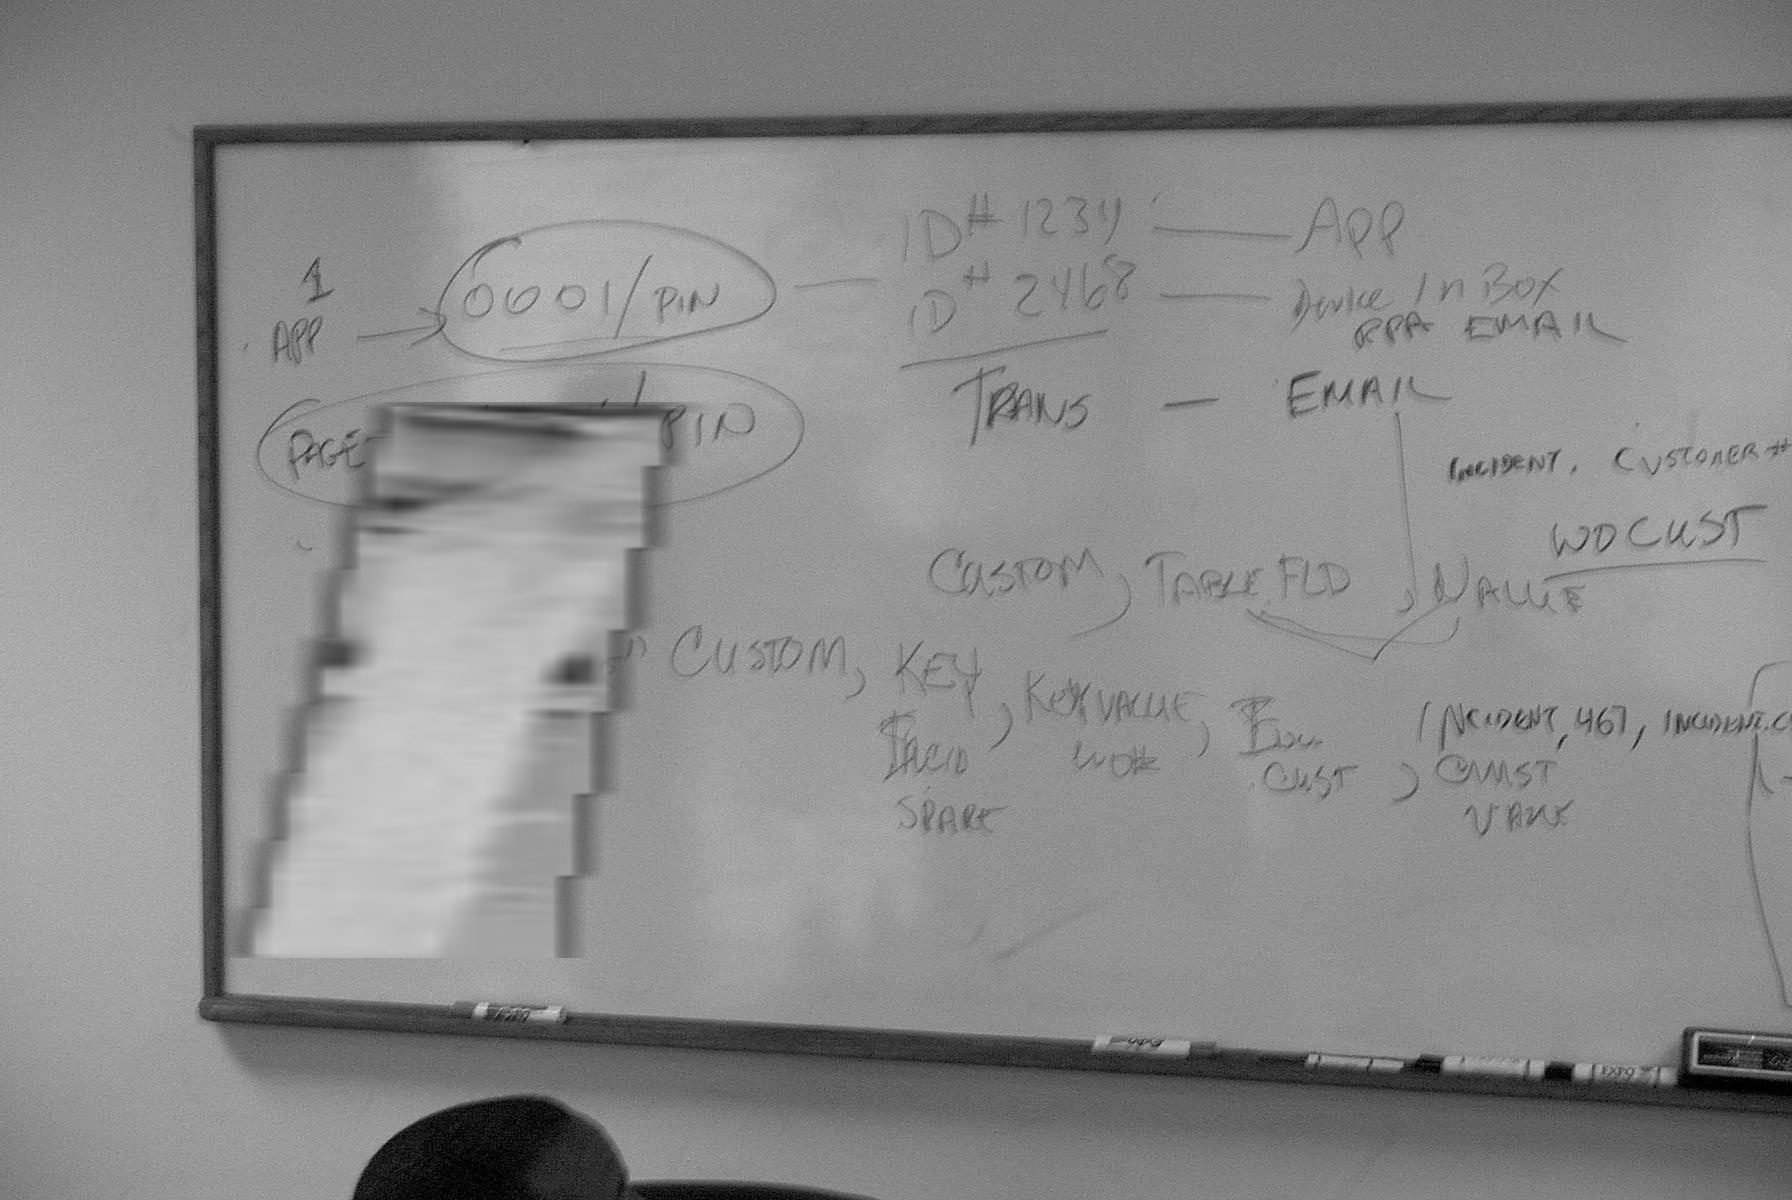 1
APP
0001/PIN
ID# 1234 — APP
ID# 2468 — Device In Box
EMAIL
PAGE
PIN
TRANS — EMAIL
INCIDENT, CUSTOMER #
WOCUST
CUSTOM, TABLE.FLD, VALUE
CUSTOM, KEY, KEY VALUE,
INCIDENT, 467, INCIDENT.C
WO#
CUST,
SPARE
EXPO